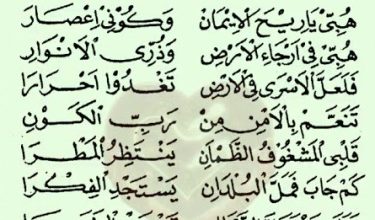 هُبِّي يَا رِيحَ الْإِيمَانِ وَكُونِي إِعْصَارَ
هُبِّي فِي أَرْجَاءِ الْأَرْضِ وَذُرِّي الْأَنْوَارِ
فَلَعَلَّ الْأَسْرَى فِي الْأَرْضِ تَغْدُوا أَحْرَارَا
تَنَعَّمْ بِالْأَمْنِ مِنْ رَبِّ الْكَوْنِ
قَلْبِي الْمَشْغُوفُ الظَّمْآنِ يَنْتَظِرُ الْمَطَرَا
كَمْ جَابَ فَلَ الْبُلْدَانِ يَسْتَجْدِ الْفِكْرَا